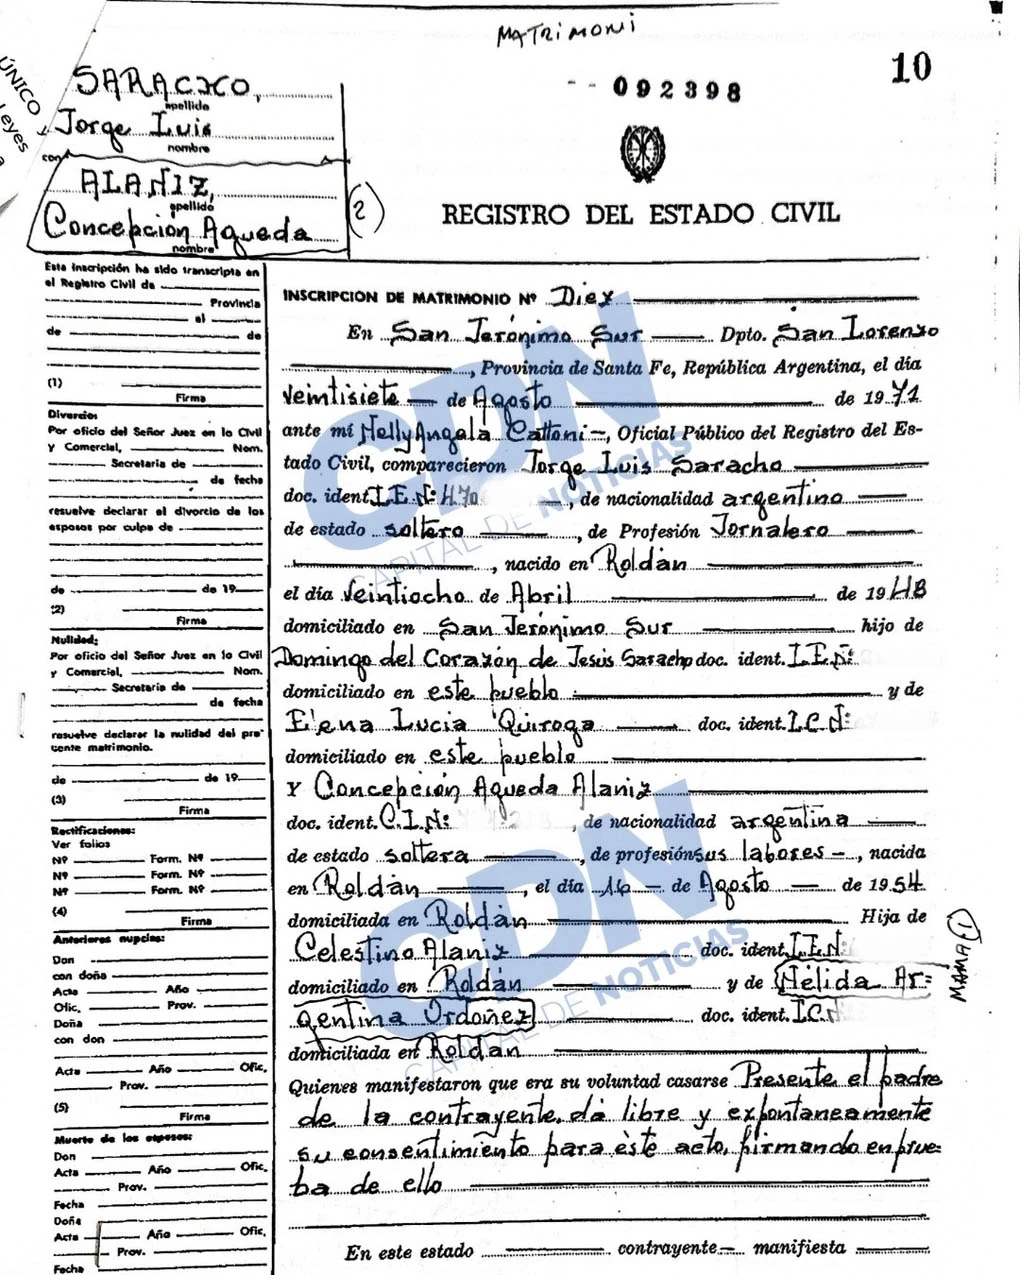 MATRIMONI
10
ÚNICO y
Leyes
- - 092398
SARACXO,
apellido
Jorge Luis
nombre
con
ALAÑIZ,
apellido
Concepción Aqueda
nombre
(2)
REGISTRO DEL ESTADO CIVIL
Esta inscripción ha sido transcripta en
el Registro Civil de
Provincia
el
de de
(1)
Firma
Divorcio:
Por oficio del Señor Juez en lo Civil
y Comercial, Nom.
Secretaría de
de fecha
resuelve declarar el divorcio de los
esposos por culpa de
de de 19
(2)
Firma
Nulidad:
Por oficio del Señor Juez en lo Civil
y Comercial, Nom.
Secretaría de
de fecha
resuelve declarar la nulidad del pre-
cente matrimonio.
de de 19
(3)
Firma
Rectificaciones:
Ver folios
Nº Form. Nº
Nº Form. Nº
Nº Form. Nº
(4)
Firma
Anteriores nupcias:
Don
con doña
Acta Año
Ofic. Prov.
Doña
con don
Acta Año Ofic.
Prov.
(5)
Firma
Muerte de los esposos:
Don
Acta Año Ofic.
Prov.
Fecha
Doña
Acta Año Ofic.
Prov.
Fecha
INSCRIPCION DE MATRIMONIO Nº Diez
En San Jerónimo Sur Dpto. San Lorenzo
, Provincia de Santa Fe, República Argentina, el día
veintisiete de Agosto de 1971
ante mí Nelly Angela Cattoni, Oficial Público del Registro del Es-
tado Civil, comparecieron Jorge Luis Saracho
doc. ident. L.E.Nº: 470 , de nacionalidad argentino
de estado soltero , de Profesión Jornalero
, nacido en Roldán
el día Veintiocho de Abril de 1948
domiciliado en San Jerónimo Sur hijo de
Domingo del Corazón de Jesús Saracho doc. ident. L.E.Nº:
domiciliado en este pueblo y de
Elena Lucía Quiroga doc. ident. L.C.Nº:
domiciliado en este pueblo
y Concepción Aqueda Alaniz
doc. ident. C.I.Nº: , de nacionalidad argentina
de estado soltera , de profesión sus labores - , nacida
en Roldán , el día 16 de Agosto de 1954
domiciliada en Roldán Hija de
Celestino Alaniz doc. ident. L.E.Nº:
domiciliado en Roldán y de Nélida Ar=
gentina Ordoñez doc. ident. L.C.Nº
domiciliada en Roldan
MAMA (1)
Quienes manifestaron que era su voluntad casarse Presente el padre
de la contrayente, dá libre y expontaneamente
su consentimiento para èste acto, firmando en prue=
ba de ello
En este estado contrayente manifiesta
CDN
CAPITAL DE NOTICIAS
CDN
CAPITAL DE NOTICIAS